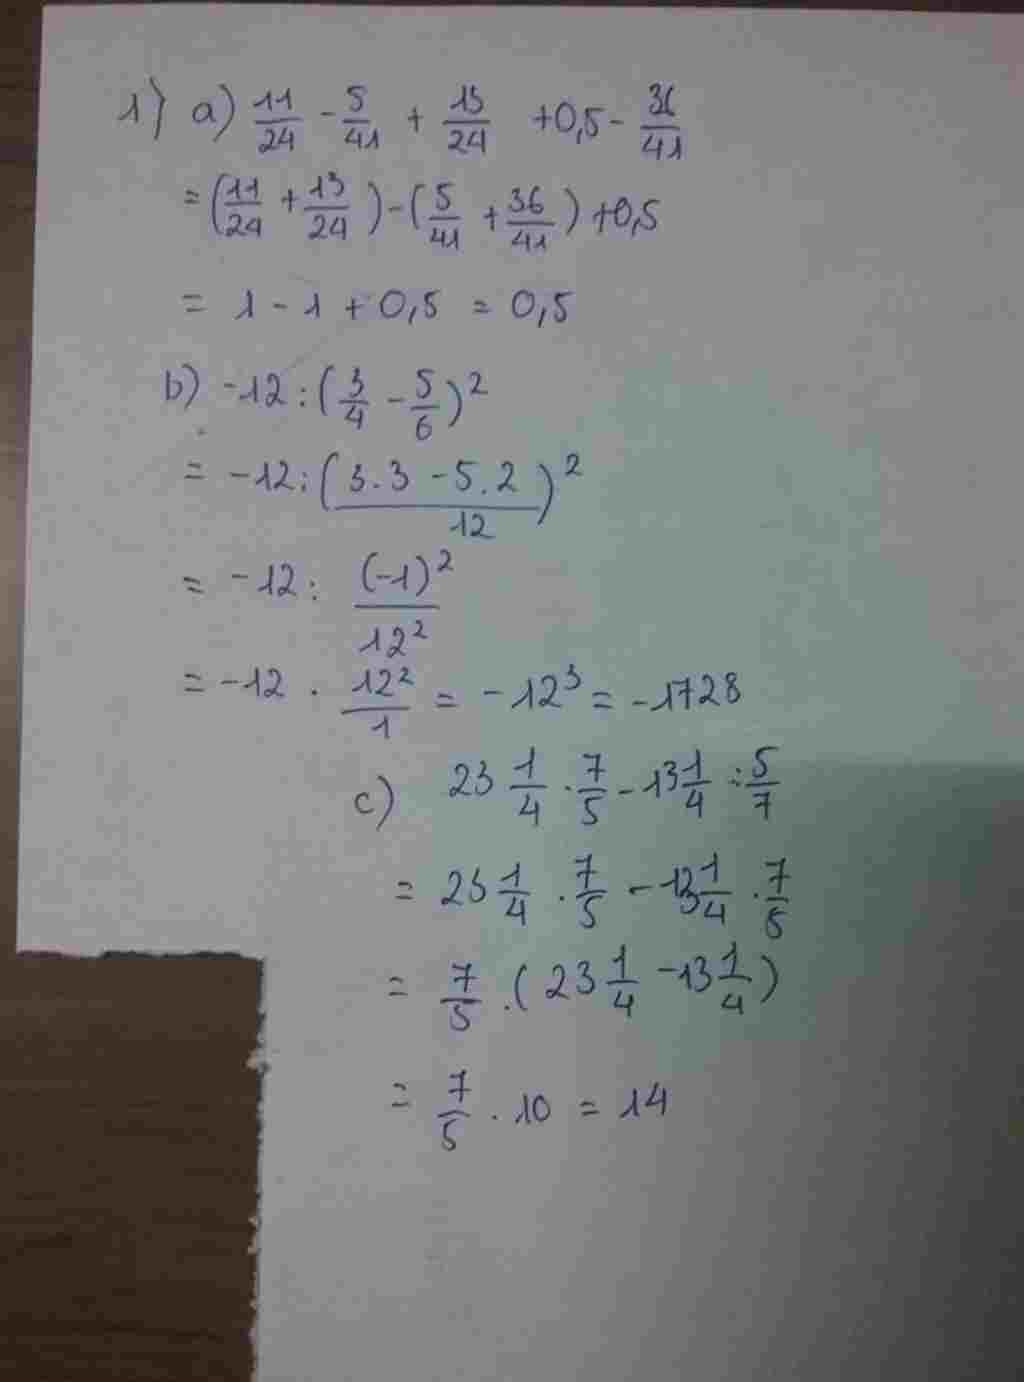 1) a) 11/24 - 5/41 + 13/24 + 0,5 - 36/41
= (11/24 + 13/24) - (5/41 + 36/41) + 0,5
= 1 - 1 + 0,5 = 0,5
b) -12 : (3/4 - 5/6)²
= -12 : ((3.3 - 5.2)/12)²
= -12 : (-1)²/12²
= -12 . 12²/1 = -12³ = -1728
c) 23 1/4 . 7/5 - 13 1/4 : 5/7
= 23 1/4 . 7/5 - 13 1/4 . 7/5
= 7/5 . (23 1/4 - 13 1/4)
= 7/5 . 10 = 14